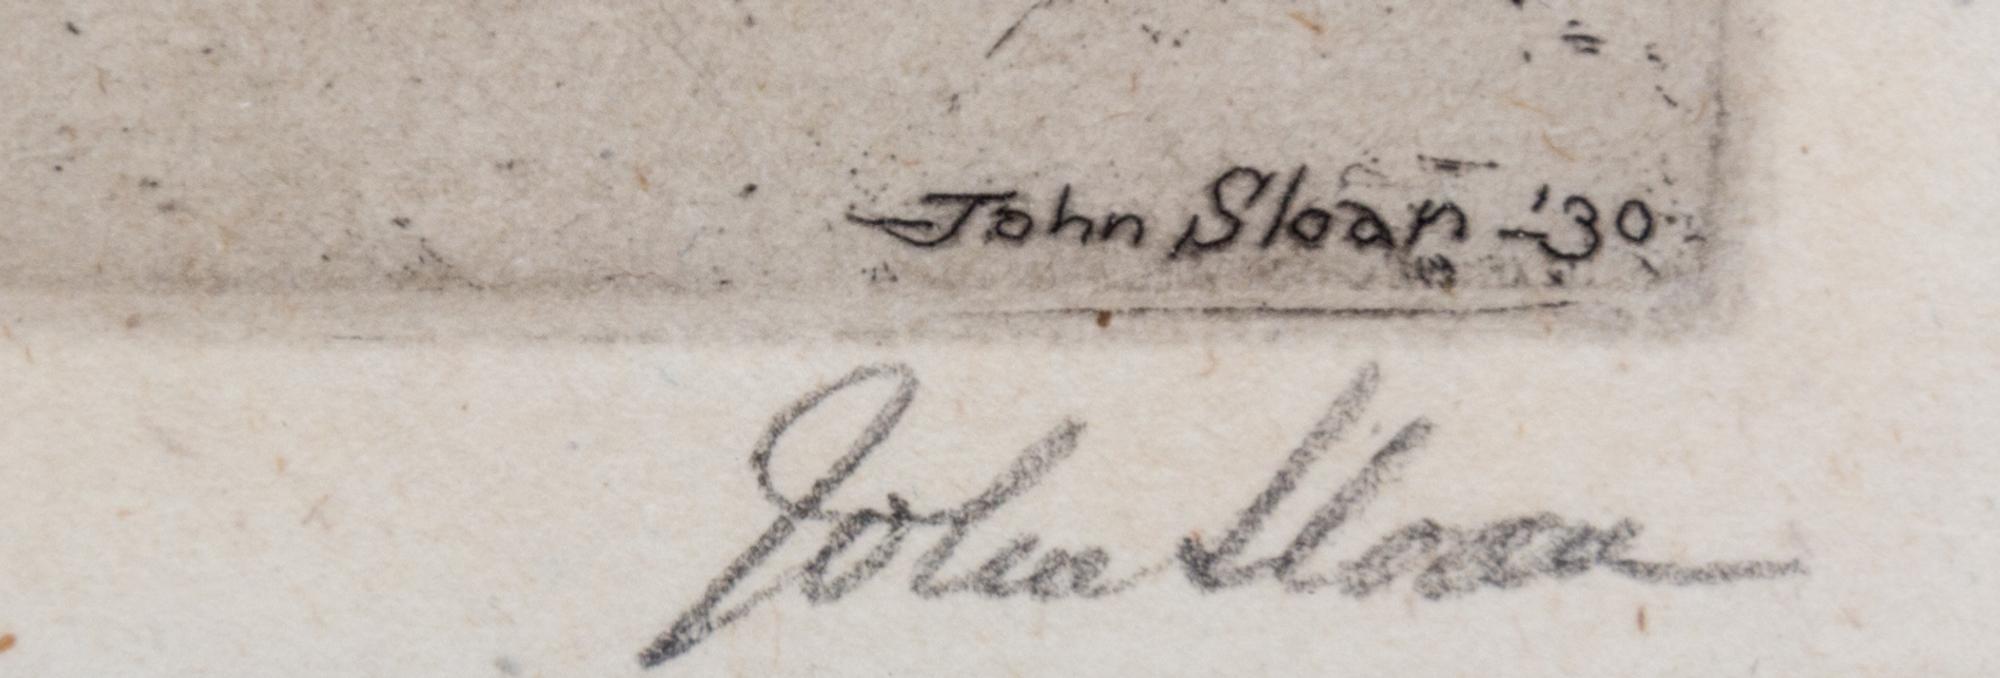 John Sloan -'30
John Sloan